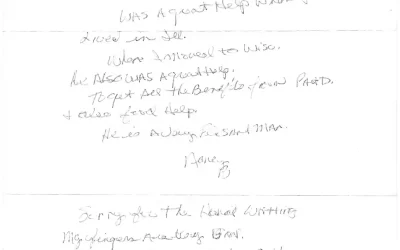 WAS A great Help When I
Lived in Ill.
When I moved to Wisc.
He Also WAS A great Help.
To get All The Benefits from PA&D.
+ also food Help.
He is A Very Pleasant Man.
Nancy
B
Sorry for the Hand Writing
My fingers